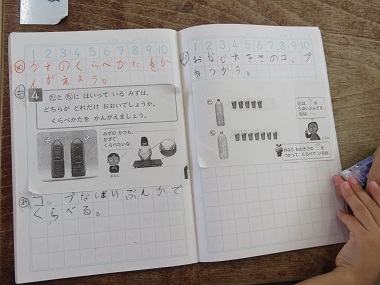 1 2 3 4 5 6 7 8 9 10
め かさのくらべかたをか
んがえよう。
4 あと いに はいって いる みずは、
どちらが どれだけ おおいでしょうか。
くらべかたを かんがえましょう。
みずの かさも、
かずで
くらべたいな。
コップなんばいぶんかで
くらべる。
1 2 3 4 5 6 7 8 9 10
おなじ大きさのコップ
をつかう。
おなじ おおきさの
つかって、くらべて いるね。